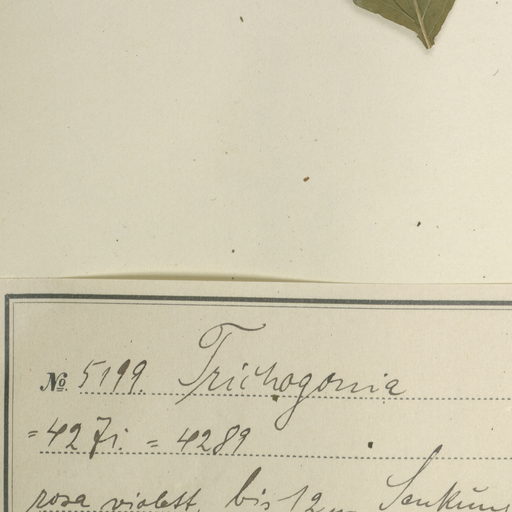 № 5199. Trichogonia
= 4271. = 4289
rosa violett, bis 12 m